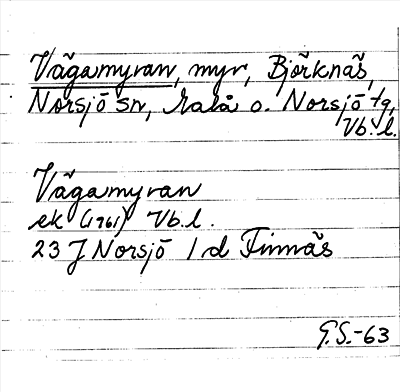 Vägamyran, myr, Björknäs,
Norsjö sn, Malå o. Norsjö tg,
Vb. l.
Vägamyran
ek (1961) Vb. l.
23 J Norsjö 1 d Finnäs
G.S.-63